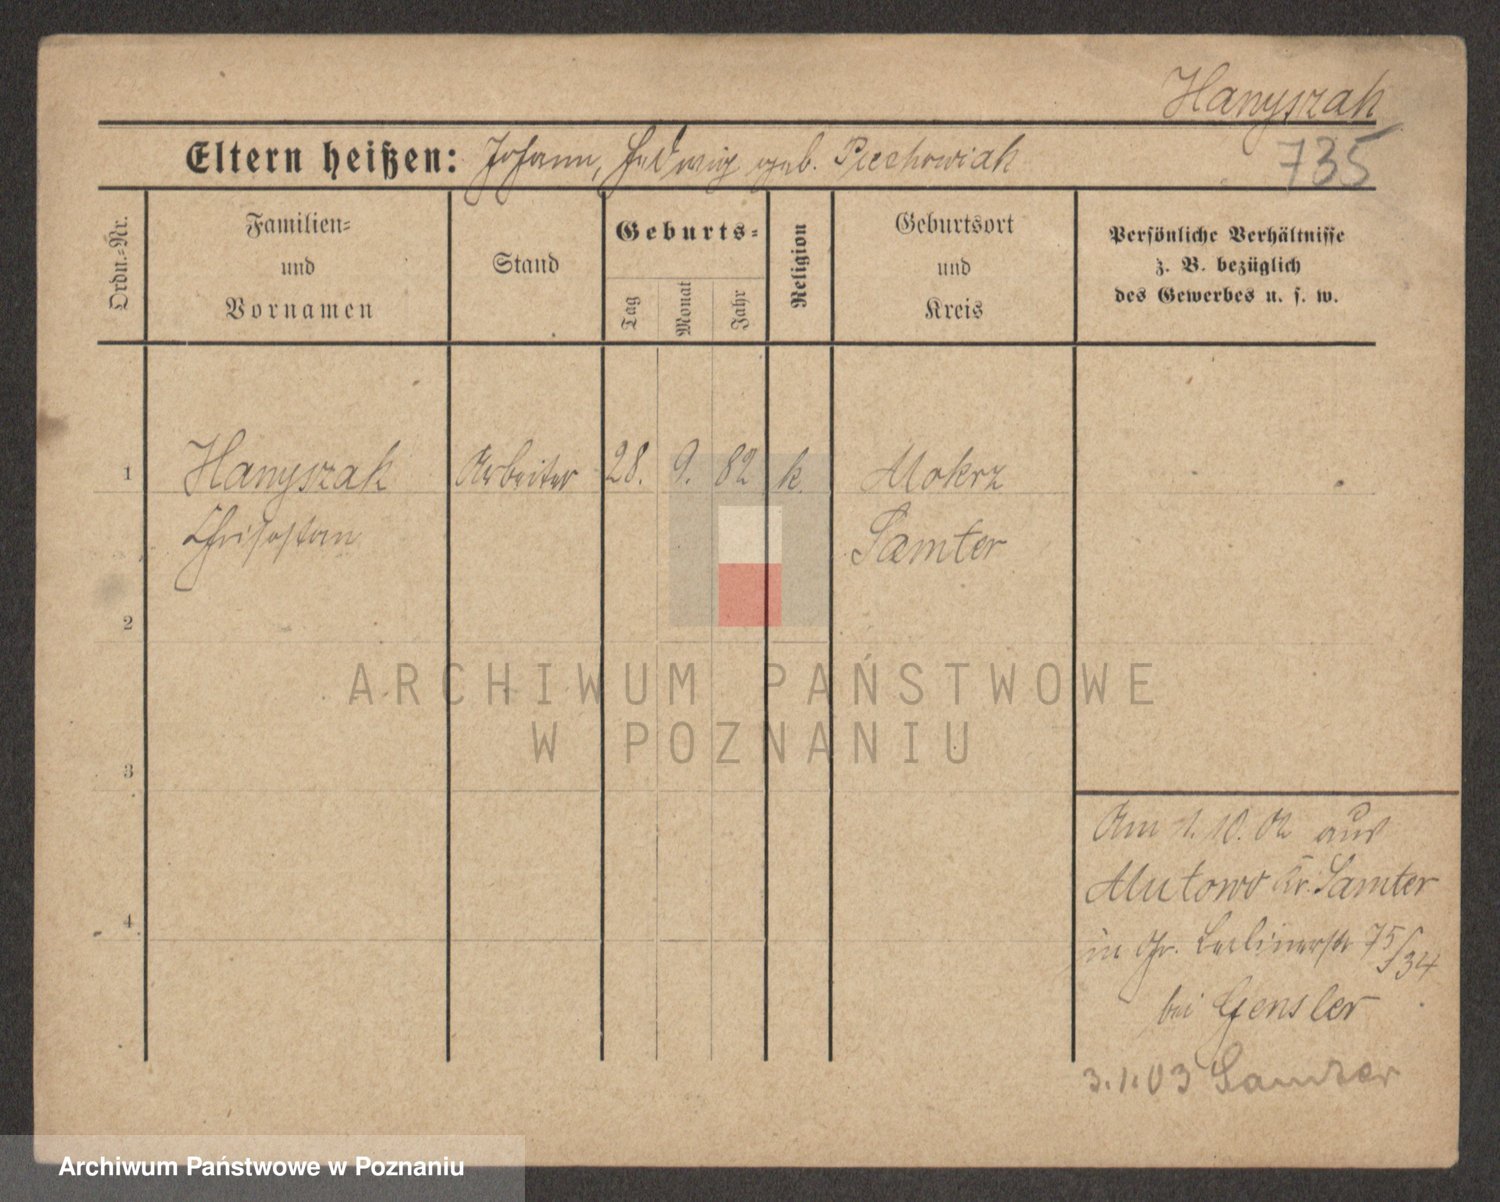 Hanyszak
Eltern heißen: Johann, Hedwig geb. Piechowiak
735
Ordn.-Nr.
Familien-
und
Vornamen
Stand
Geburts-
Tag
Monat
Jahr
Religion
Geburtsort
und
Kreis
Persönliche Verhältnisse
z. B. bezüglich
des Gewerbes u. s. w.
1
Hanyszak Arbeiter 28. 9. 82 k. Mokrz
Samter
2
ARCHIWUM PAŃSTWOWE
W POZNANIU
3
4
Am 1. 10. 02 aus
Mutowo Kr. Samter
in Gr. Berlinerstr 75/34
bei Gensler
3.1.03 Samter
Archiwum Państwowe w Poznaniu